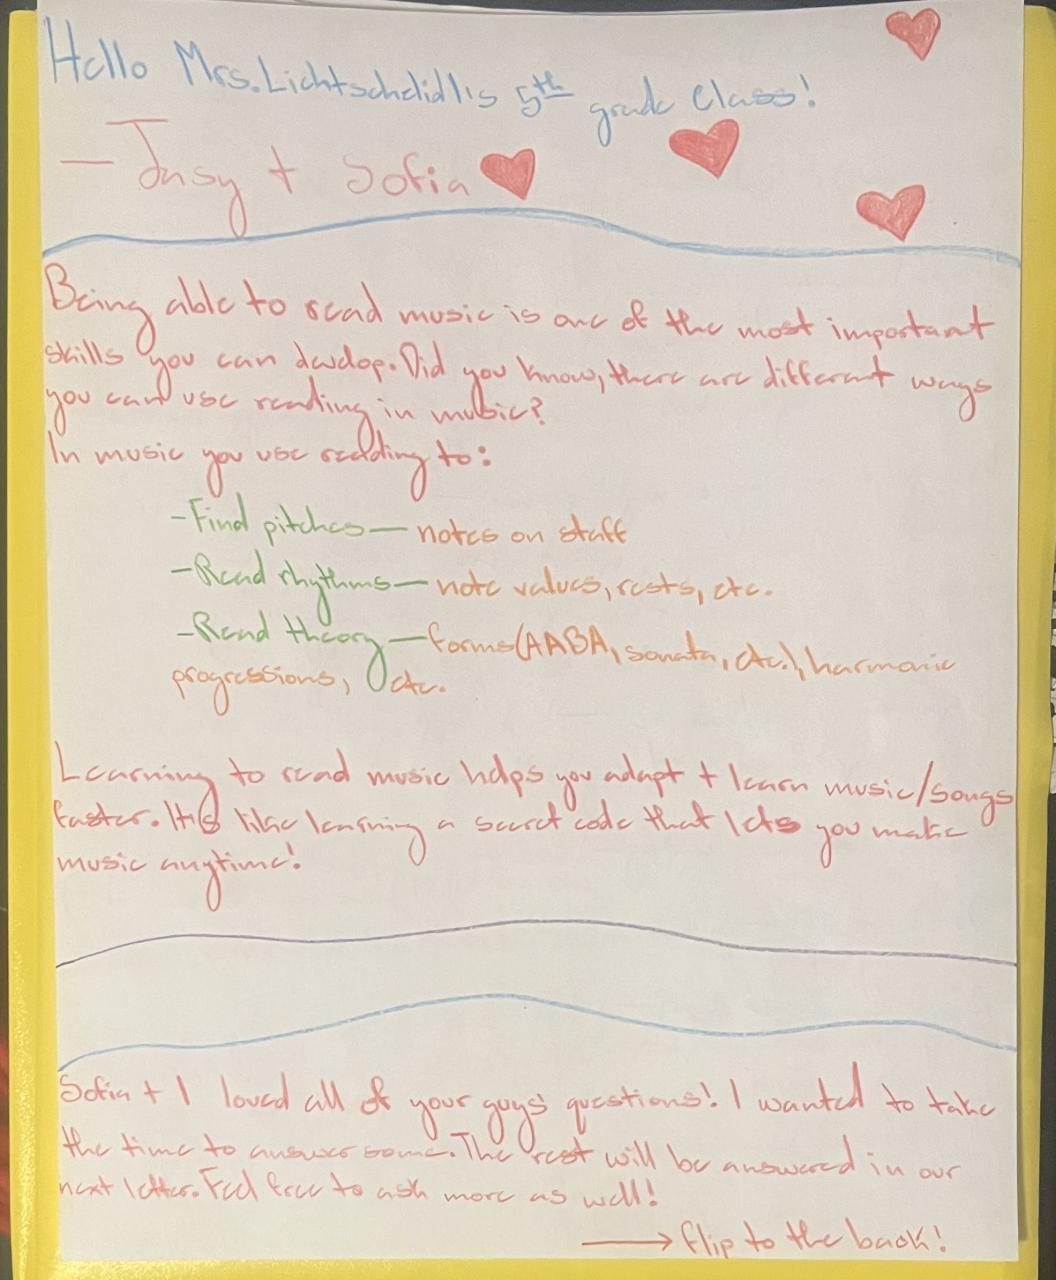 Hello Mrs. Lichtscheidl's 5th grade Class!
— Jasy + Sofia
Being able to read music is one of the most important
skills you can develop. Did you know, there are different ways
you can use reading in music?
In music you use reading to:
-Find pitches — notes on staff
-Read rhythms — note values, rests, etc.
-Read theory — forms (AABA, sonata, etc.), harmonic
progressions, etc.
Learning to read music helps you adapt + learn music/songs
faster. It's like learning a secret code that lets you make
music anytime!
Sofia + I loved all of your guys' questions! I wanted to take
the time to answer some. The rest will be answered in our
next letter. Feel free to ask more as well!
→ flip to the back!